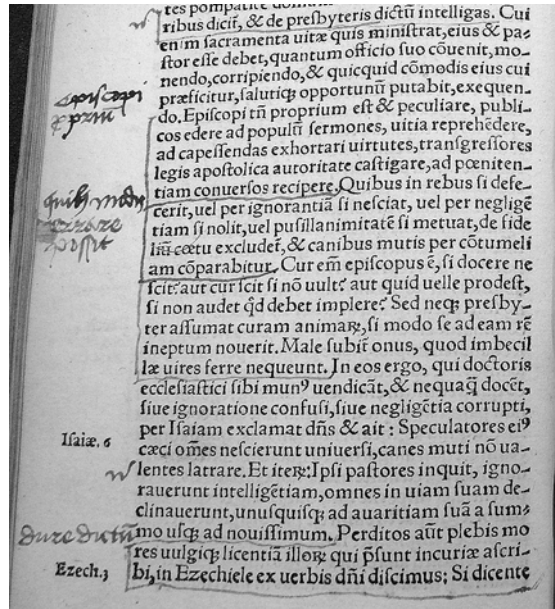 tes pompatice
ribus dicit, & de presbyteris dictũ intelligas. Cui
enim sacramenta uitæ quis ministrat, eius & pa-
stor esse debet, quantum officio suo cõuenit, mo-
nendo, corripiendo, & quicquid cõmodis eius cui
præficitur, salutiqꝫ opportunũ putabit, exequen-
do. Episcopi tñ proprium est & peculiare, publi-
cos edere ad populũ sermones, uitia reprehẽdere,
ad capessendas exhortari uirtutes, transgressores
legis apostolica autoritate castigare, ad pœniten-
tiam conuersos recipere. Quibus in rebus si defe-
cerit, uel per ignorantiã si nesciat, uel per negligẽ
tiam si nolit, uel pusillanimitatẽ si metuat, de fide
liũ cœtu excludet̃, & canibus mutis per cõtumeli
am cõparabitur. Cur em̃ episcopus ẽ, si docere ne
scit? aut cur scit si nõ uult? aut quid uelle prodest,
si non audet qd̃ debet implere? Sed neqꝫ presby-
ter assumat curam animaꝝ, si modo se ad eam rẽ
ineptum nouerit. Male subit̃ onus, quod imbecil
læ uires ferre nequeunt. In eos ergo, qui doctoris
ecclesiastici sibi munꝰ uendicãt, & nequaq̃ docẽt,
siue ignoratione confusi, siue negligẽtia corrupti,
per Isaiam exclamat dñs & ait : Speculatores eiꝰ
cæci om̃es nescierunt uniuersi, canes muti nõ ua-
lentes latrare. Et iteꝝ: Ipsi pastores inquit, igno-
rauerunt intelligẽtiam, omnes in uiam suam de-
clinauerunt, unusquisqꝫ ad auaritiam suã a sum-
mo usqꝫ ad nouissimum. Perditos aũt plebis mo
res uulgiqꝫ licentiã illoꝝ qui p̃sunt incuriæ ascri-
bi, in Ezechiele ex uerbis dñi discimus: Si dicente
episcopi
ꝓpriũ
quibꝰ modis
errare
possit
Isaiæ. 6
dure dictũ
Ezech. 3